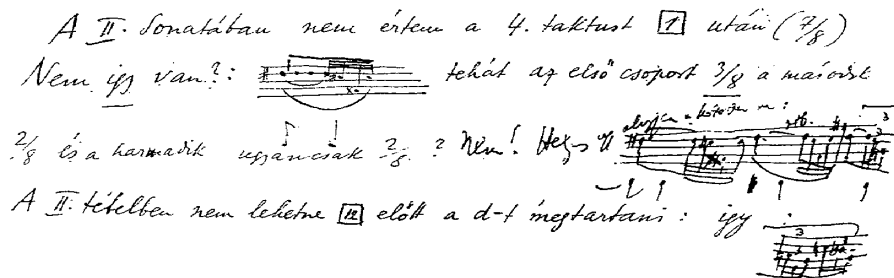 A II. Sonatában nem értem a 4. taktust 1 után (7/8)
Nem így van?: tehát az első csoport 3/8 a második
2/8 és a harmadik ugyancsak 2/8 ? Nem!
A II. tételben nem lehetne 12 előtt a d-t megtartani : így